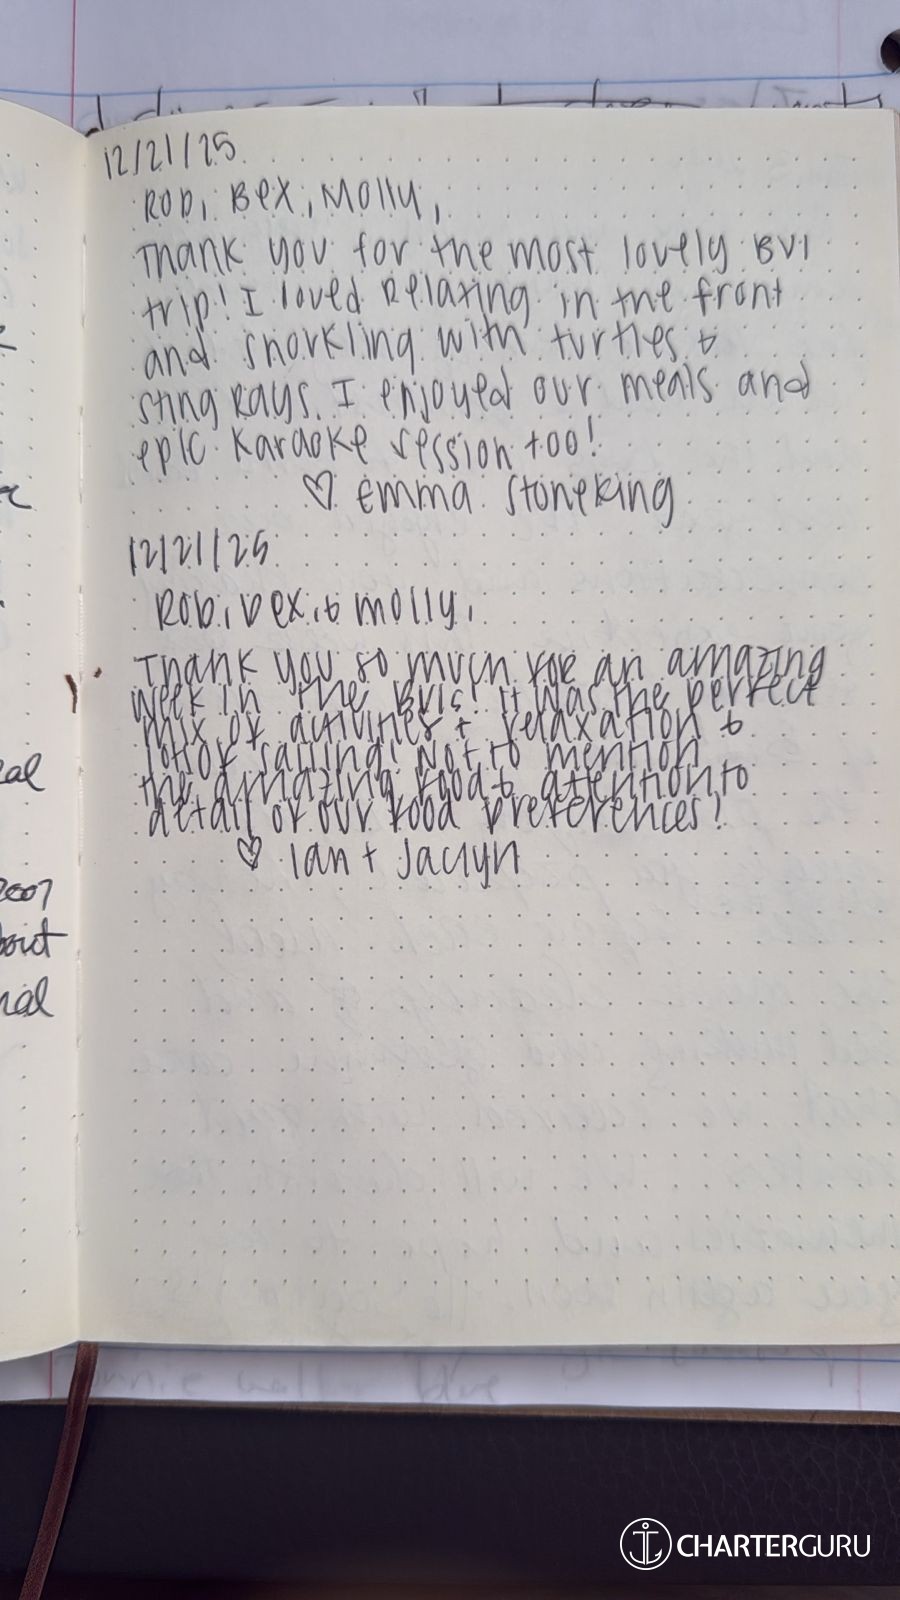 12/21/25
Rob, Bex, Molly,
Thank you for the most lovely BVI
trip! I loved relaxing in the front
and snorkling with turtles &
sting rays. I enjoyed our meals and
epic karaoke session too!
♡ Emma Stoneking
12/21/25
Rob, Bex, & Molly,
Thank you so much for an amazing
week in the BVIs! It was the perfect
mix of activities + relaxation &
lots of sailing! Not to mention
the amazing food & attention to
detail of our food preferences!
♡ Ian + Jaclyn
2007
CHARTERGURU